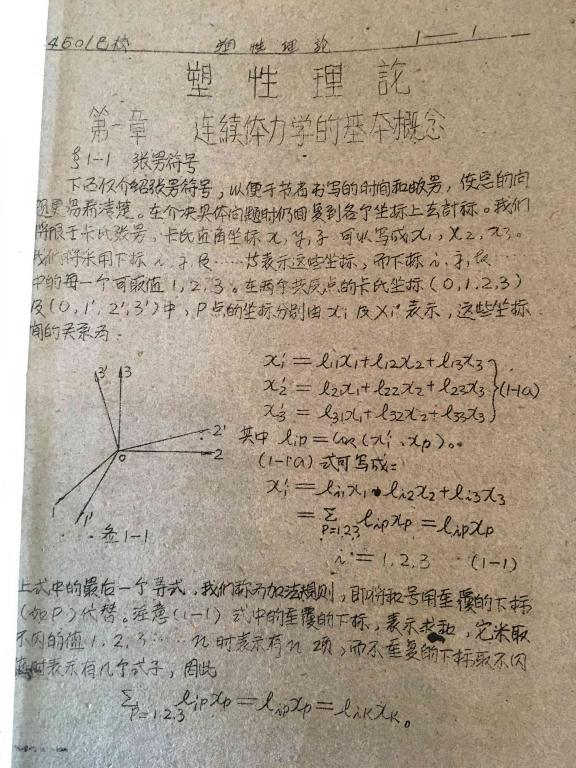 塑性理论 1—1
塑性理论
第一章 连续体力学的基本概念
§1-1 张量符号
下面仅介绍张量符号,以便于节省书写的时间和
易而清楚。在介决具体问题时仍回复到各个坐标上去计标。我们
将限于卡氏张量,卡氏直角坐标x,y,z 可以写成x₁,x₂,x₃。
我们将采用下标i,j,及……等表示这些坐标,而下标i,j,
中的每一个可取值1,2,3。在两个共原点的卡氏坐标(0,1,2,3)
及(0,1′,2′,3′)中,P点的坐标分别由xᵢ及xᵢ′表示,这些坐标
间的关系为:
3′ 3
2′
o 2
1 1′
图1-1
x₁′ = l₁₁x₁+l₁₂x₂+l₁₃x₃
x₂′ = l₂₁x₁+l₂₂x₂+l₂₃x₃ (1-1a)
x₃′ = l₃₁x₁+l₃₂x₂+l₃₃x₃
其中 lᵢₚ=cos(xᵢ′·xₚ)。
(1-1a)式可写成:
xᵢ′ = lᵢ₁x₁+lᵢ₂x₂+lᵢ₃x₃
= Σ P=1,2,3 lᵢₚxₚ = lᵢₚxₚ
i = 1,2,3 (1-1)
上式中的最后一个等式,我们称为加法规则,即将和号用重复的下标
(如P)代替。注意(1-1)式中的重复的下标,表示求和,它米取
不同的值1,2,3……n时表示有n项,而不重复的下标取不同
值时表示有几个式子,因此
Σ P=1,2,3 lᵢₚxₚ = lᵢₚxₚ = lᵢₖxₖ。